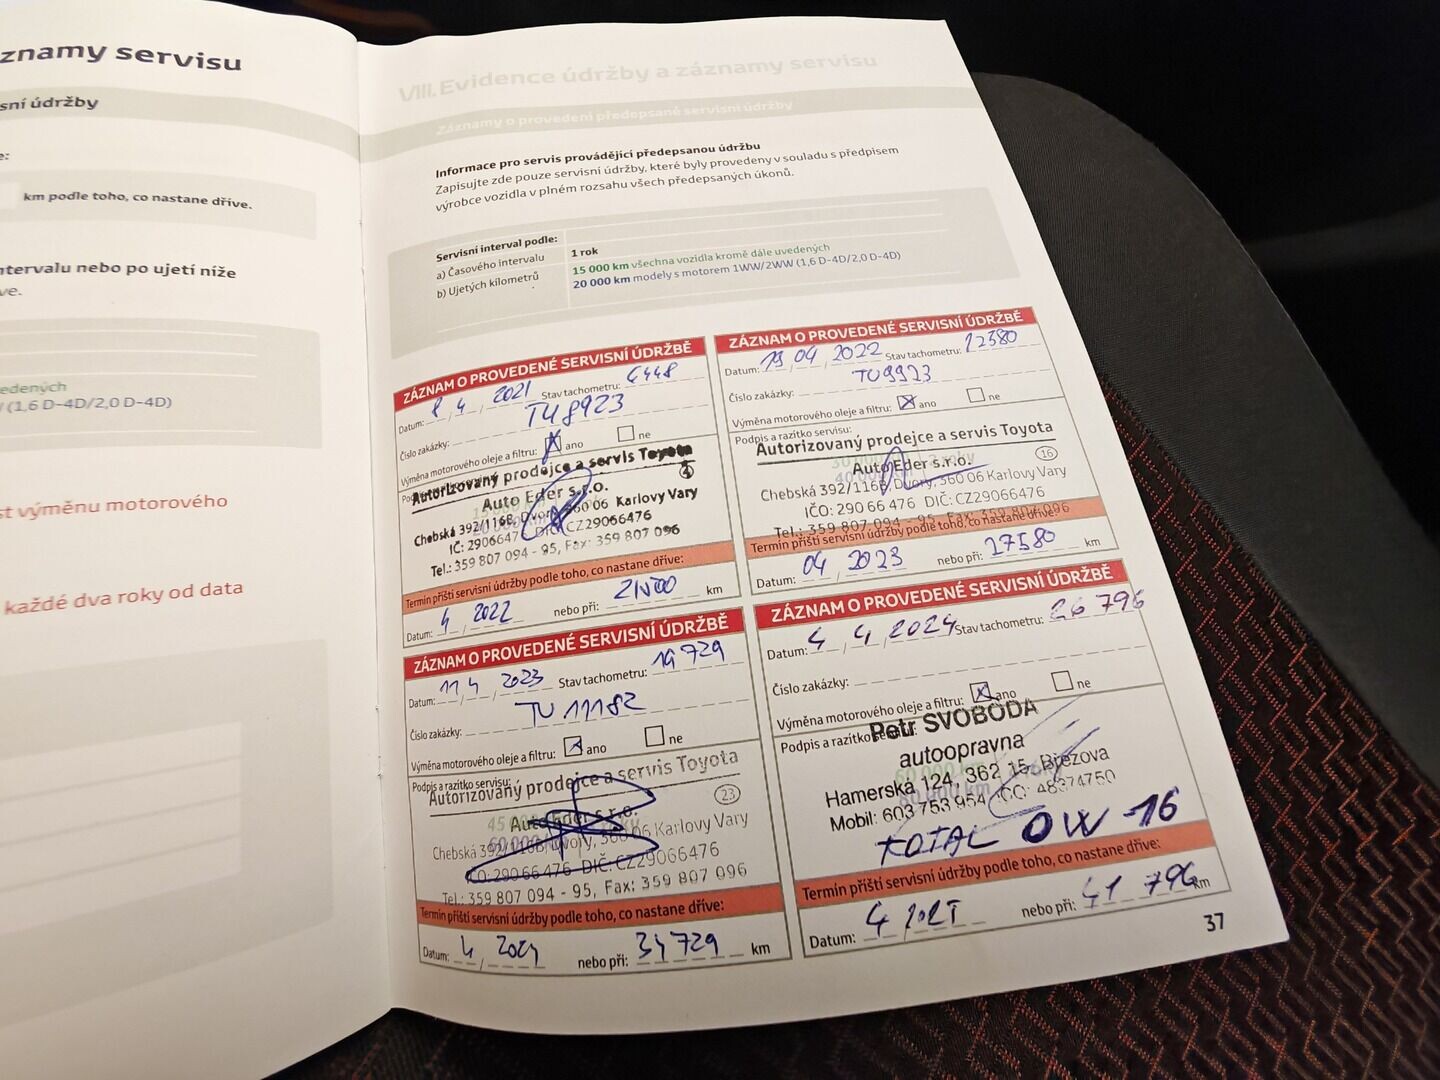 znamy servisu
sní údržby
e:
km podle toho, co nastane dříve.
ntervalu nebo po ujetí níže
ve.
edených
/ (1,6 D-4D/2,0 D-4D)
st výměnu motorového
každé dva roky od data
VIII. Evidence údržby a záznamy servisu
Záznamy o provedení předepsané servisní údržby
Informace pro servis provádějící předepsanou údržbu
Zapisujte zde pouze servisní údržby, které byly provedeny v souladu s předpisem
výrobce vozidla v plném rozsahu všech předepsaných úkonů.
Servisní interval podle:
a) Časového intervalu 1 rok
b) Ujetých kilometrů 15 000 km všechna vozidla kromě dále uvedených
20 000 km modely s motorem 1WW/2WW (1,6 D-4D/2,0 D-4D)
ZÁZNAM O PROVEDENÉ SERVISNÍ ÚDRŽBĚ
Datum: 8 / 4 / 2021 Stav tachometru: 6448
Číslo zakázky: TU8923
Výměna motorového oleje a filtru: ano ne
Autorizovaný prodejce a servis Toyota
Auto Eder s.r.o.
Chebská 392/116B, Dvory, 360 06 Karlovy Vary
IČ: 29066476 DIČ: CZ29066476
Tel.: 359 807 094 - 95, Fax: 359 807 096
Termín příští servisní údržby podle toho, co nastane dříve:
Datum: 4 / 2022 nebo při: km
ZÁZNAM O PROVEDENÉ SERVISNÍ ÚDRŽBĚ
Datum: 19 / 04 / 2022 Stav tachometru: 12580
Číslo zakázky: TU9923
Výměna motorového oleje a filtru: ano ne
Podpis a razítko servisu:
Autorizovaný prodejce a servis Toyota
Auto Eder s.r.o. 16
Chebská 392/116B, Dvory, 360 06 Karlovy Vary
IČO: 290 66 476 DIČ: CZ29066476
Tel.: 359 807 094 - 95, Fax: 359 807 096
Termín příští servisní údržby podle toho, co nastane dříve:
Datum: 04 / 2023 nebo při: 27580 km
ZÁZNAM O PROVEDENÉ SERVISNÍ ÚDRŽBĚ
Datum: 11 / 4 / 2023 Stav tachometru: 19 729
Číslo zakázky: TU 11182
Výměna motorového oleje a filtru: ano ne
Podpis a razítko servisu:
Autorizovaný prodejce a servis Toyota
Auto Eder s.r.o. 23
Chebská 392/116B, Dvory, 360 06 Karlovy Vary
IČO: 290 66 476 DIČ: CZ29066476
Tel.: 359 807 094 - 95, Fax: 359 807 096
Termín příští servisní údržby podle toho, co nastane dříve:
Datum: 4 / 2024 nebo při: 34 729 km
ZÁZNAM O PROVEDENÉ SERVISNÍ ÚDRŽBĚ
Datum: 4 / 4 / 2024 Stav tachometru: 26 796
Číslo zakázky:
Výměna motorového oleje a filtru: ano ne
Podpis a razítko servisu:
Petr SVOBODA
autoopravna
Hamerská 124, 362 15 Březova
Mobil: 603 753 954 IČO: 48374750
TOTAL OW-16
Termín příští servisní údržby podle toho, co nastane dříve:
Datum: 4 / 2025 nebo při: 41 796 km
37